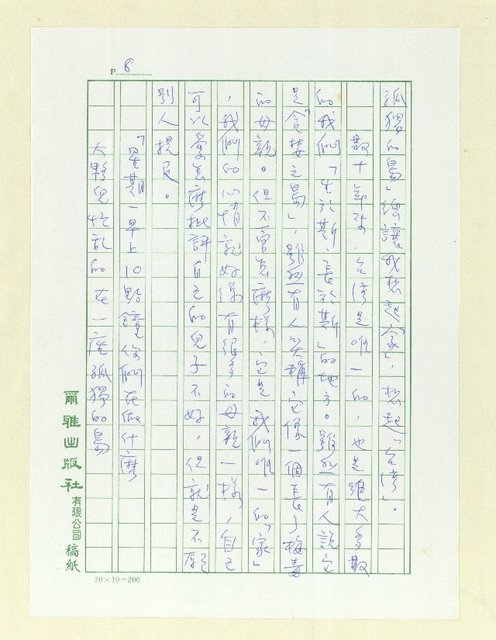 P 8
孤獨的島」總讓我想起「家」，想起「台灣」。
數十年來，台灣是唯一的，也是絕大多數
的我們「生於斯，長於斯」的地方。雖然有人說它
是「貪婪之島」，雖然有人笑稱它像一個長了梅毒
的母親。但不管怎麼樣，它是我們唯一的「家」
，我們的心情就好像有很多的母親一樣，自己
可以當怎麼批評自己的兒子不好，但就是不願
別人提及。
「星期一早上10點鐘你們在做什麼
大夥兒忙亂的在一座孤獨的島
爾雅出版社有限公司稿紙
20×10=200